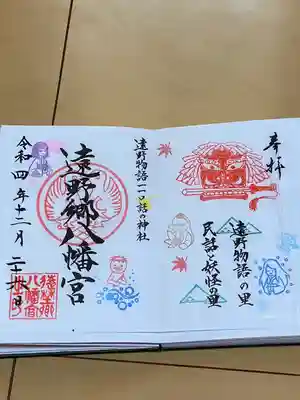 奉拝
遠野物語の里
民話と妖怪の里
遠野物語一一〇話の神社
遠野郷八幡宮
令和四年十二月二十九日